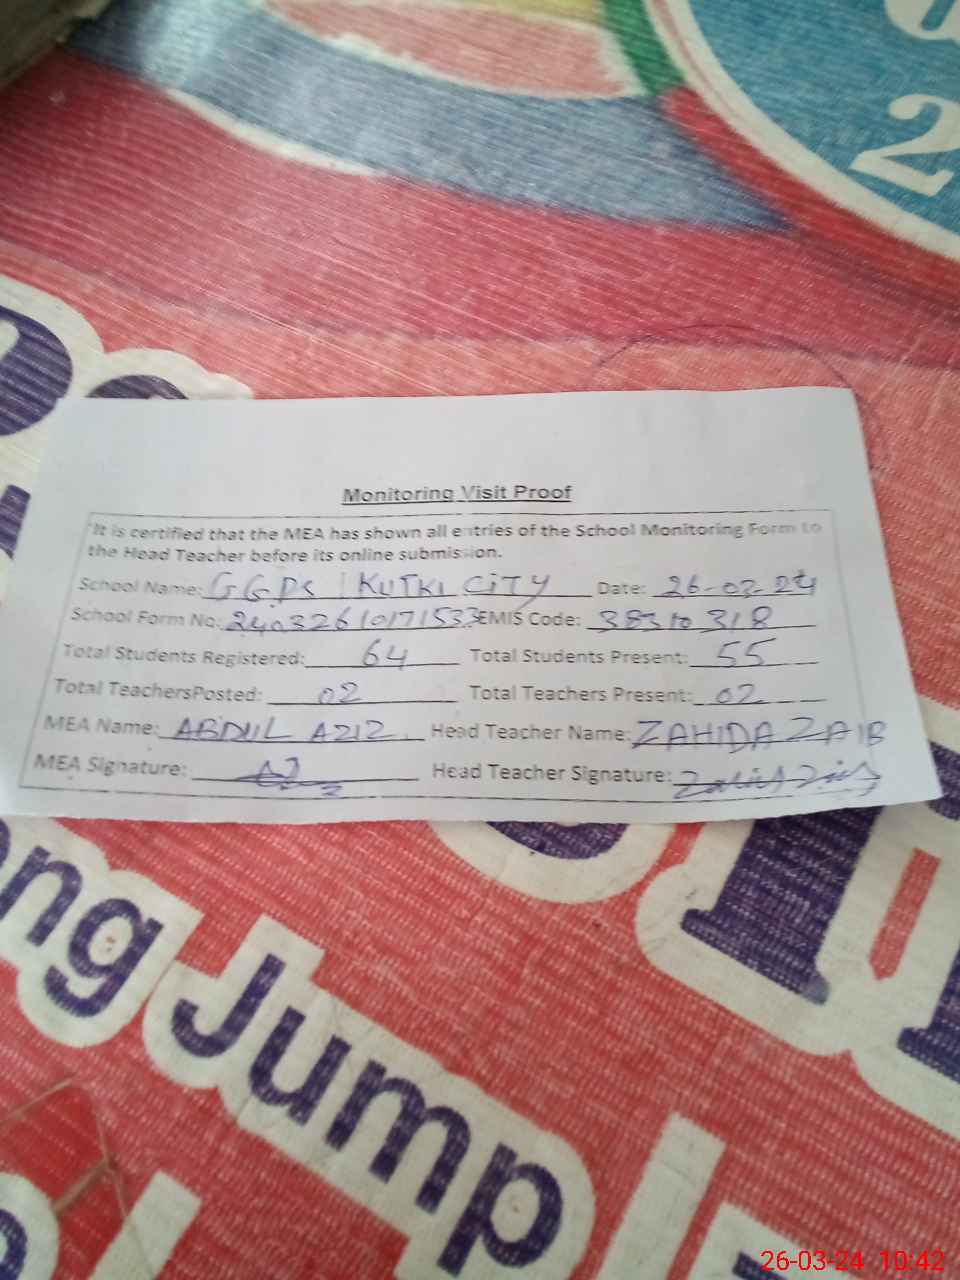 2
Monitoring Visit Proof
"It is certified that the MEA has shown all entries of the School Monitoring Form to
the Head Teacher before its online submission.
School Name: GGPS KUTKI CITY Date: 26-03-24
School Form No: 24032610171533 EMIS Code: 38310318
Total Students Registered: 64 Total Students Present: 55
Total TeachersPosted: 02 Total Teachers Present: 02
MEA Name: ABDUL AZIZ. Head Teacher Name: ZAHIDA ZAIB
MEA Signature: Head Teacher Signature:
ong Jump
26-03-24 10:42